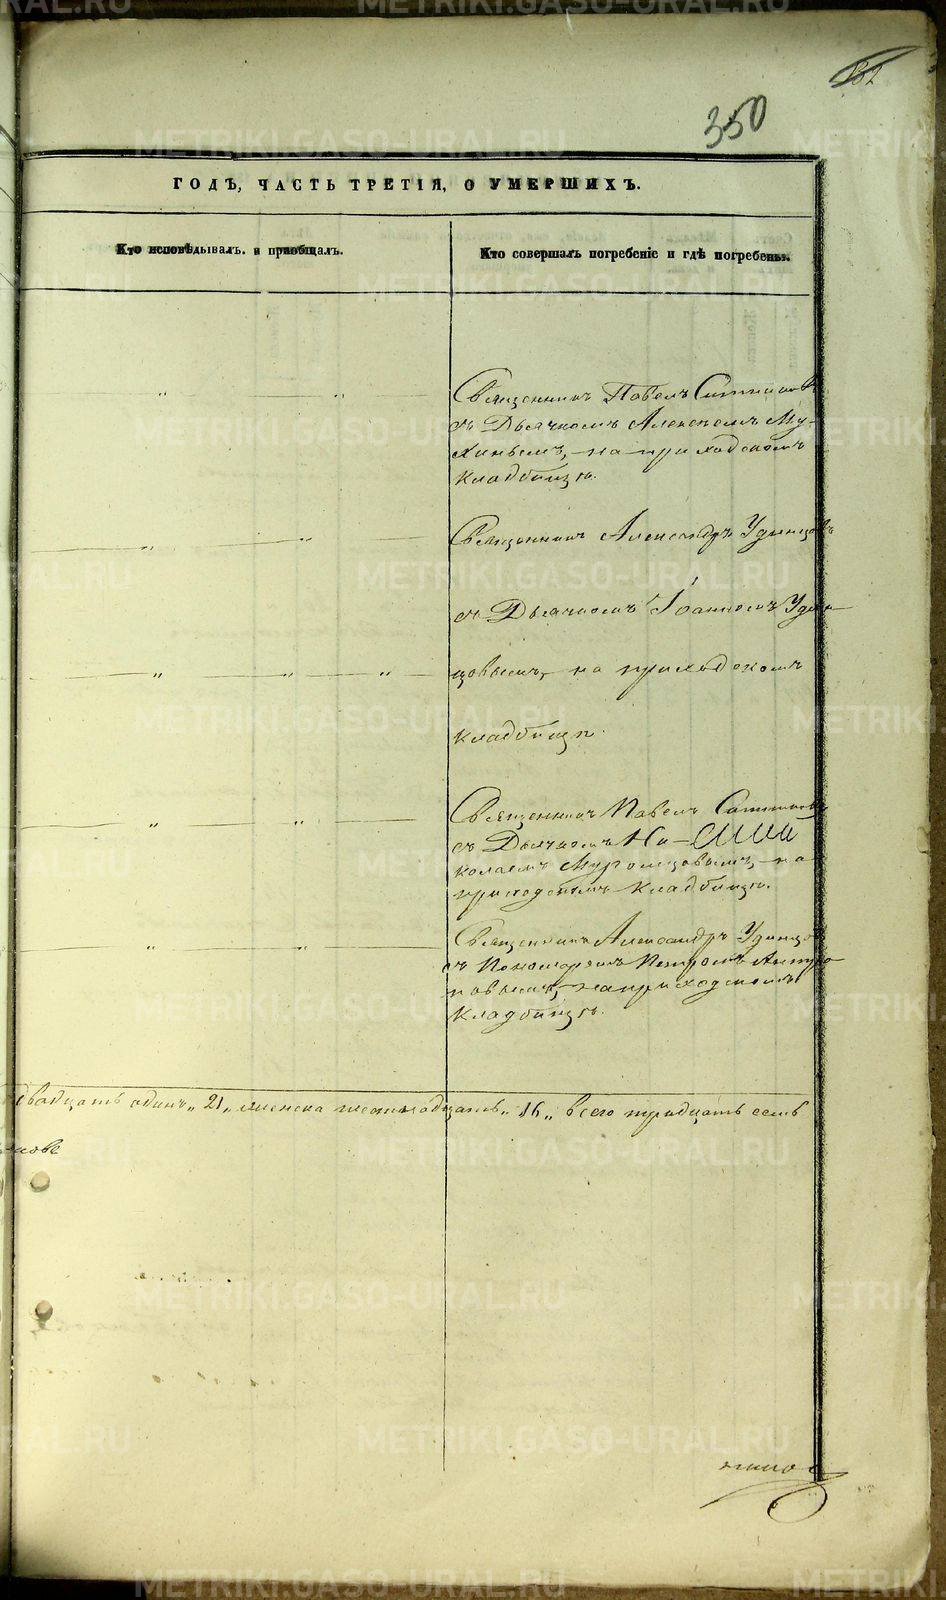 132
350
ГОДЪ, ЧАСТЬ ТРЕТІЯ, О УМЕРШИХЪ.
Кто исповѣдывалъ и пріобщалъ.
Кто совершалъ погребеніе и гдѣ погребены.
Священникъ Павелъ Ситниковъ
съ Дьячкомъ Алексѣемъ Му-
хинымъ, на приходскомъ
кладбищѣ.
Священникъ Александръ Удинцовъ
съ Дьячкомъ Іоанномъ Удин
цовымъ, на приходскомъ
кладбищѣ.
Священникъ Павелъ Ситниковъ
съ Дьячкомъ Ни-
колаемъ Муромцовымъ, на
приходскомъ кладбищѣ.
Священникъ Александръ Удинцовъ
съ Пономаремъ Петромъ Антро
повымъ, на приходскомъ
кладбищѣ.
двадцать одинъ „ 21 „ женска шестнадцать „ 16 „ всего тридцать семь
METRIKI.GASO-URAL.RU